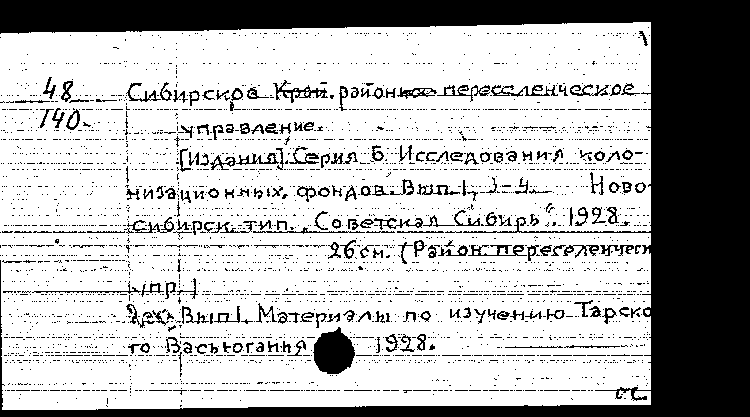 48 Сибирское Край. районное переселенческое
140. управление.
[Издания]. Серия Б. Исследования коло-
низационных фондов. Вып. 1, 3-4. Ново-
сибирск, тип. „Советская Сибирь". 1928.
26 см. (Район. переселенческ
упр.)
Вып 1. Материалы по изучению Тарско
го Васьюганья 1928.